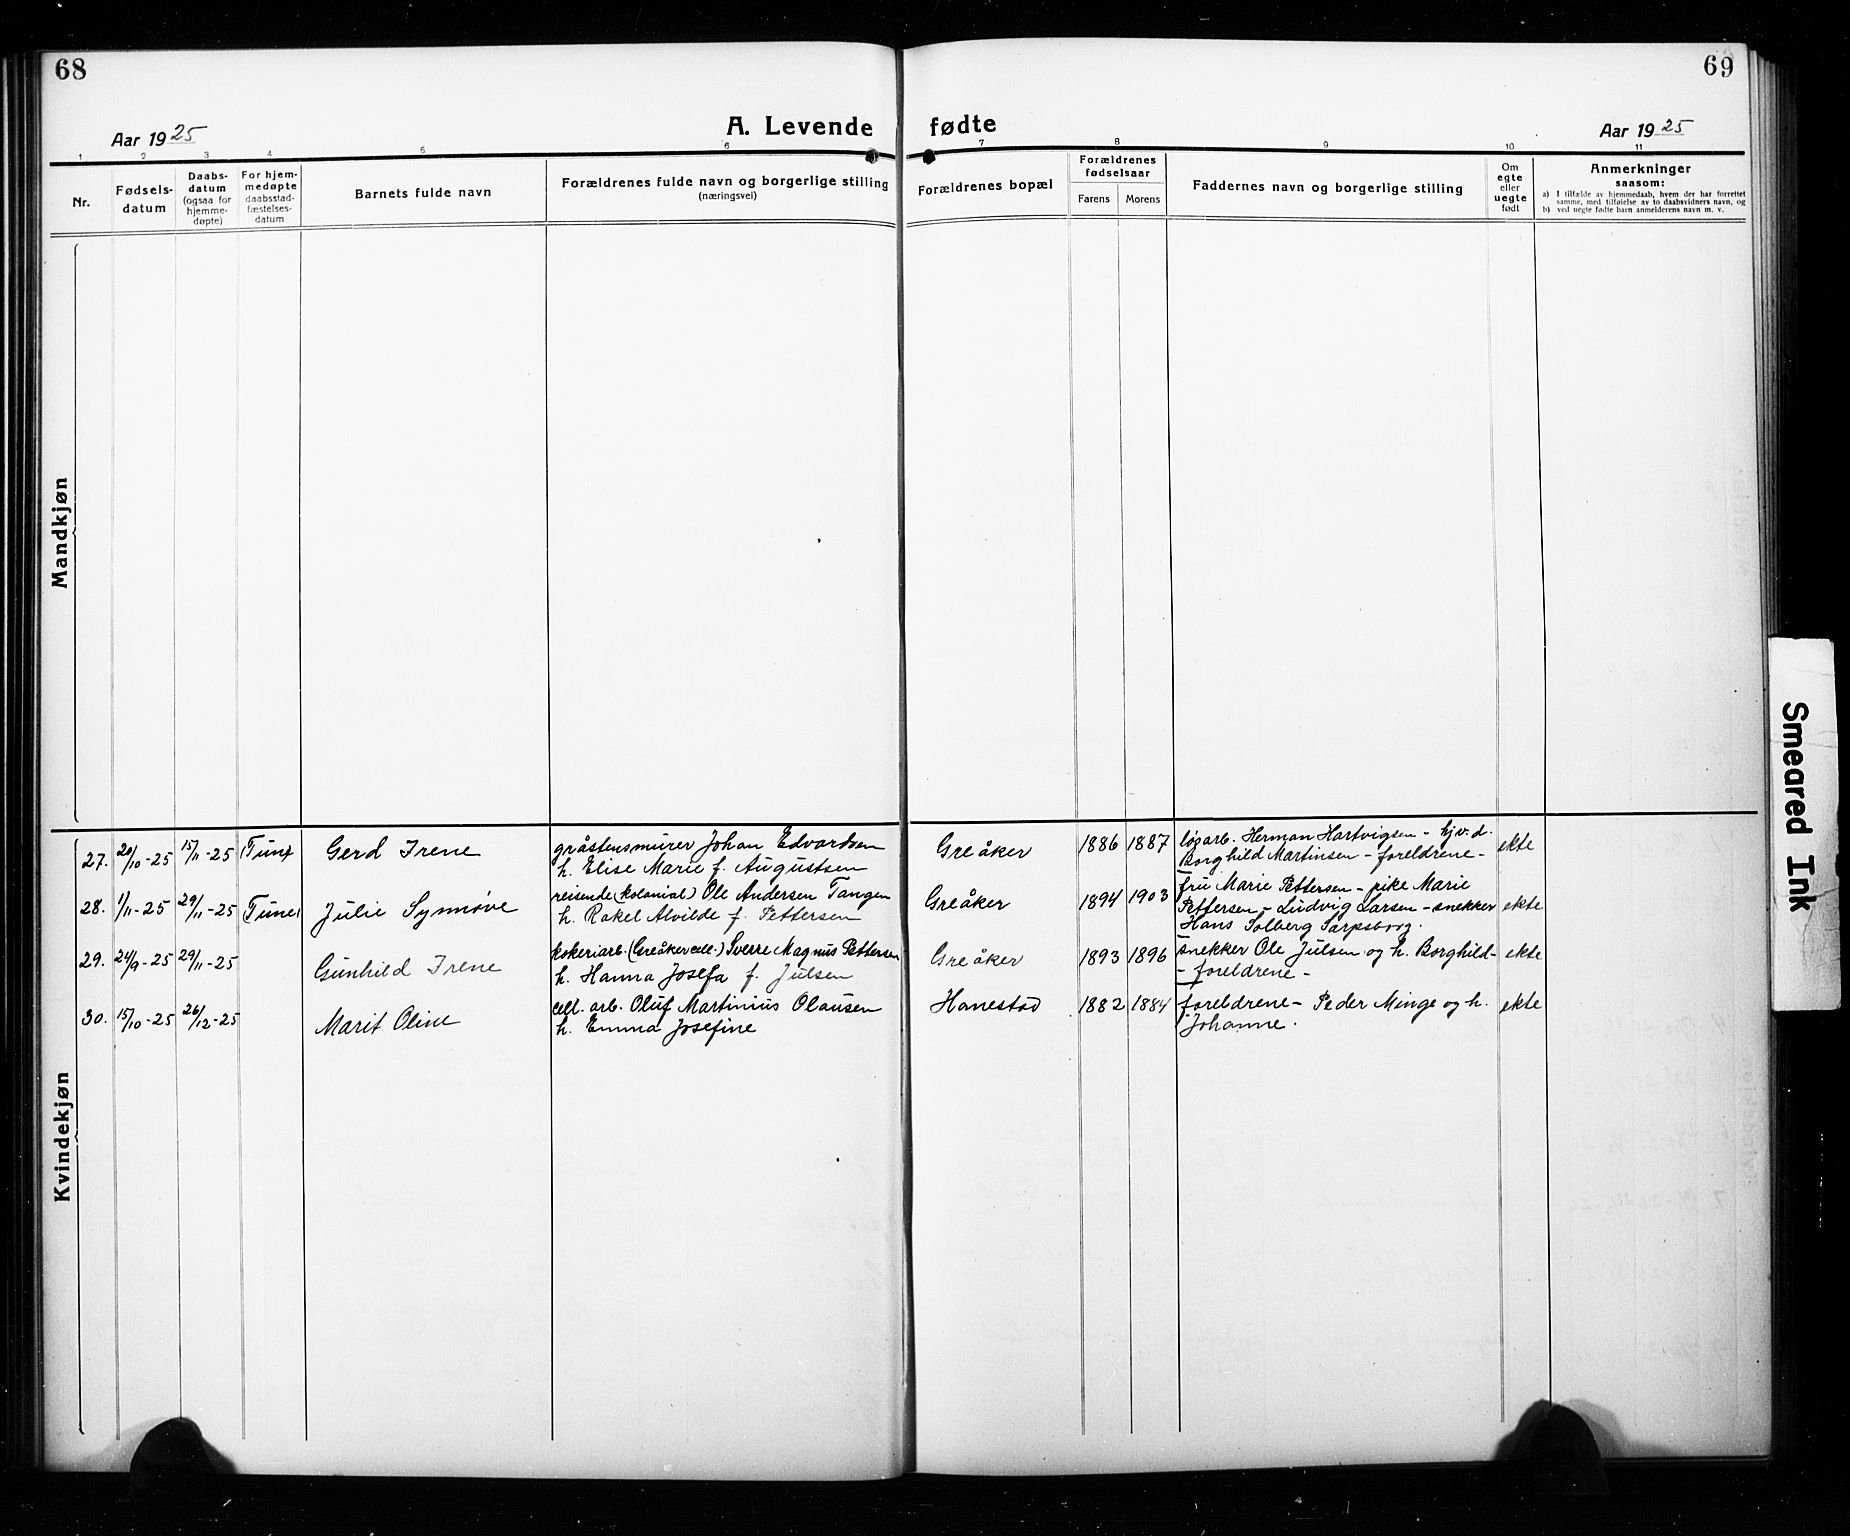 68
69
Aar 1925
A. Levende fødte
Aar 1925
1 2 3 4 5 6 7 8 9 10 11
Nr.
Fødsels-
datum
Daabs-
datum
(ogsaa for
hjemme-
døpte)
For hjem-
medøpte
daabsstad-
fæstelses-
datum
Barnets fulde navn
Forældrenes fulde navn og borgerlige stilling
(næringsvei)
Forældrenes bopæl
Forældrenes
fødselsaar
Farens Morens
Faddernes navn og borgerlige stilling
Om
egte
eller
uegte
født
Anmerkninger
saasom:
a) I tilfælde av hjemmedaab, hvem der har forrettet
samme, med tilføielse av to daabsvidners navn, og
b) ved uegte fødte barn anmelderens navn m. v.
Mandkjøn
Kvindekjøn
27. 20/10-25 15/11-25 Tune Gerd Irene gråstensmurer Johan Edvardsen Greåker 1886 1887 løsarb. Herman Hartvigsen - hjv. d. ekte
h. Elise Marie f. Augustsen Borghild Martinsen - foreldrene -
28. 1/11-25 29/11-25 Tune Julie Synnøve reisende (kolonial) Ole Andersen Tangen Greåker 1894 1903 fru Marie Pettersen - pike Marie ekte
h. Rakel Alvilde f. Pettersen Pettersen - Ludvig Larsen - snekker
Hans Solberg Sarpsborg.
29. 24/9-25 29/11-25 Gunhild Irene kokeriarb. (Greåker cell.) Sverre Magnus Pettersen Greåker 1893 1896 snekker Ole Julsen og h. Borghild - ekte
h. Hanna Josefa f. Julsen - foreldrene -
30. 15/10-25 26/12-25 Marit Oline cell. arb. Oluf Martinius Olausen Hanestad 1882 1884 foreldrene - Peder Minge og h. ekte
h. Emma Josefine Johanne.
Smeared Ink